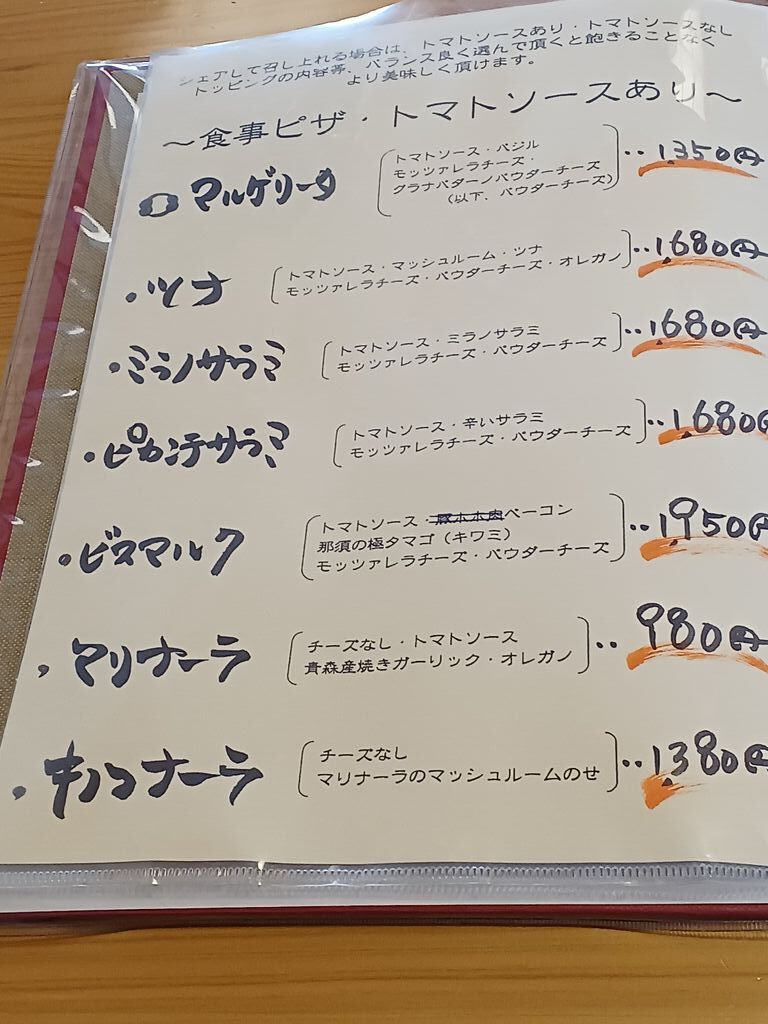 シェアして召し上れる場合は、トマトソースあり・トマトソースなし
トッピングの内容等、バランス良く選んで頂くと飽きることなく
より美味しく頂けます。
～食事ピザ・トマトソースあり～
マルゲリータ
トマトソース・バジル
モッツァレラチーズ・
グラナパダーノパウダーチーズ
(以下、パウダーチーズ)
‥1350円
・ツナ
トマトソース・マッシュルーム・ツナ
モッツァレラチーズ・パウダーチーズ・オレガノ
‥1680円
・ミラノサラミ
トマトソース・ミラノサラミ
モッツァレラチーズ・パウダーチーズ
‥1680円
・ピカンテサラミ
トマトソース・辛いサラミ
モッツァレラチーズ・パウダーチーズ
‥1680円
・ビスマルク
トマトソース・豚ホホ肉ベーコン
那須の極タマゴ（キワミ）
モッツァレラチーズ・パウダーチーズ
‥1950円
・マリナーラ
チーズなし・トマトソース
青森産焼きガーリック・オレガノ
‥980円
・キノコナーラ
チーズなし
マリナーラのマッシュルームのせ
‥1380円